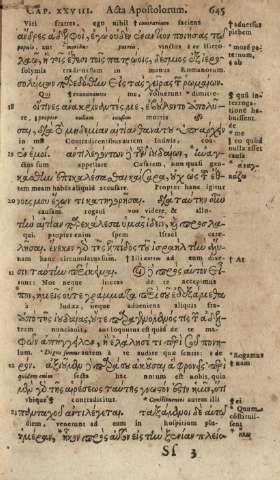 CAP. XXVIII. Acta Apostolorum. 645
Viri fratres, ego nihil contrarium faciens
ἄνδρες ἀδελφοί, ἐγὼ οὐδὲν ἐναντίον ποιήσας τῷ
populo, aut moribus patriis, vinctus ex Hiero-
λαῷ, ἢ τοῖς ἔθεσι τοῖς πατρῴοις, δέσμιος ἐξ ἱερο-
solymis traditus sum in manus Romanorum.
σολύμων παρεδόθην εἰς τὰς χεῖρας τῶν ῥωμαίων.
18 οἵτινες ἀνακρίναντές με, ἐβούλοντο ἀπολῦ-
re, propter nullam causam mortis esse
σαι, διὰ τὸ μηδεμίαν αἰτίαν θανάτου ὑπάρχειν
in me. Contradicentibus autem Iudæis,
19 ἐν ἐμοί. ἀντιλεγόντων δὲ τῶν ἰουδαίων, ἠναγ-
sum appellare Cæsarem, non quasi gen-
κάσθην ἐπικαλέσασθαι καίσαρα, οὐχ ὡς τοῦ ἔθ-
tem meam habens aliquid accusare. Propter hanc igitur
20 νους μου ἔχων τι κατηγορῆσαι. διὰ ταύτην οὖν
causam rogavi vos videre, & allo-
τὴν αἰτίαν παρεκάλεσα ὑμᾶς ἰδεῖν, καὶ προσλα-
qui: propter enim spem Israel
λῆσαι. ἕνεκεν γὰρ τῆς ἐλπίδος τοῦ ἰσραὴλ τὴν ἅλυ-
hanc circumdatus sum. Illi autem ad eum dixe-
21 σιν ταύτην περίκειμαι. Οἱ δὲ πρὸς αὐτὸν εἶ-
runt: Nos neque literas de te accepimus
πον, ἡμεῖς οὔτε γράμματα περὶ σοῦ ἐδεξάμεθα
à Iudæa, neque adveniens aliquis fra-
ἀπὸ τῆς ἰουδαίας, οὔτε παραγενόμενός τις τῶν ἀδελ-
trum nunciavit, aut loquutus est quid de te
φῶν ἀπήγγειλεν, ἢ ἐλάλησέ τι περὶ σοῦ πονη-
lum. Dignum putamus autem à te audire quæ sentis: de
22 ρόν. ἀξιοῦμεν δὲ παρὰ σοῦ ἀκοῦσαι ἃ φρονεῖς. περὶ
quidem enim secta hac notum est nobis, quia
μὲν γὰρ τῆς αἱρέσεως ταύτης γνωστόν ἐστιν ἡμῖν, ὅτι
ubique contradicitur. Constituentes autem illi
23 πανταχοῦ ἀντιλέγεται. ταξάμενοι δὲ αὐτῷ
diem, venerunt ad eum in hospitium plu-
ἡμέραν, ἧκον πρὸς αὐτὸν εἰς τὴν ξενίαν πλείο-
Sſ 3
† adversus
plebem
† At
† Rogamus
nam